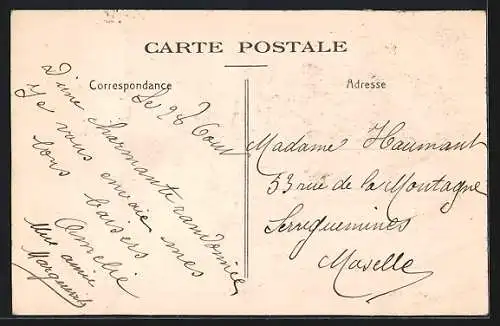 CARTE POSTALE
Correspondance
Le 28 Aout
D'une charmante randonnée
je vous envoie mes
bons baisers
Amelie
Une amie
Marguerite
Adresse
Madame Haumant
53 rue de la Montagne
Serreguemines
Moselle